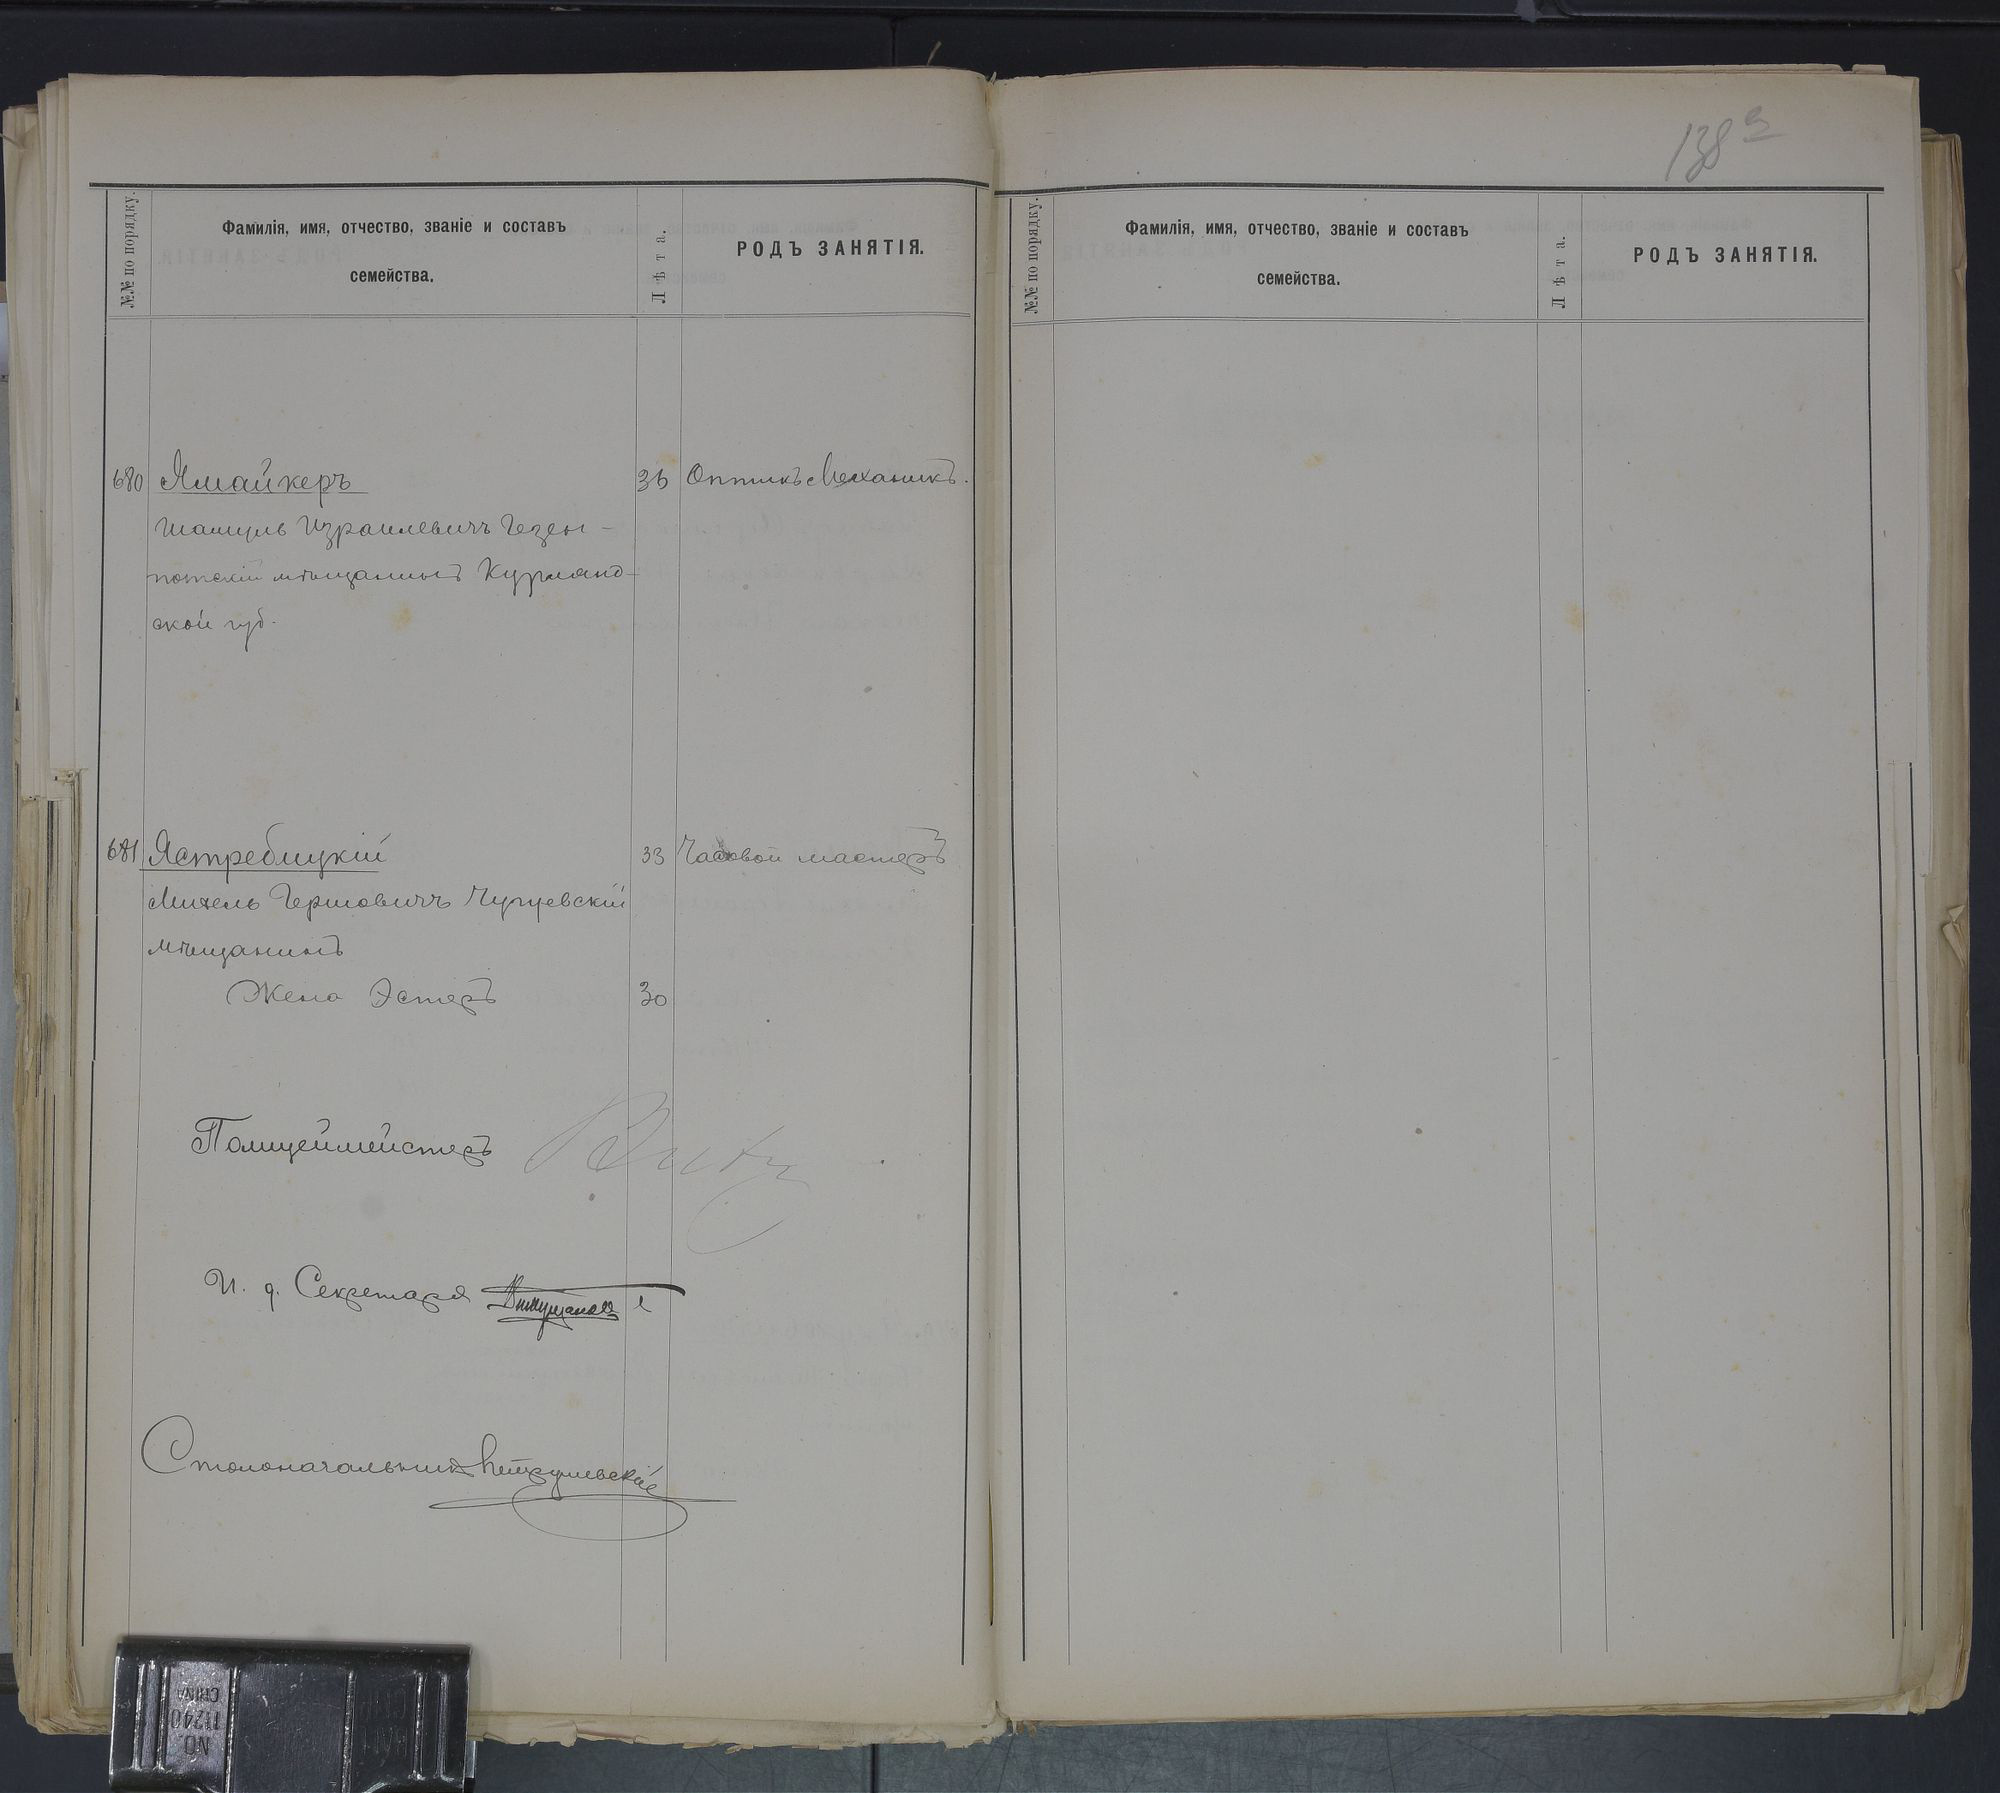 №№ по порядку.
Фамилія, имя, отчество, званіе и составъ
семейства.
Лѣта.
РОДЪ ЗАНЯТІЯ.
680 Ямайкеръ 36 Оптикъ Механикъ.
Шамуль Израилевичъ Газен-
потскій мѣщанинъ Курлянд-
ской губ.
681 Ястреблицкій 33 Часовой мастеръ
Михель Гершовичъ Чугуевскій
мѣщанинъ
Жена Эстеръ 30
Полицеймейстеръ
И. д. Секретаря
Столоначальникъ
138
№№ по порядку.
Фамилія, имя, отчество, званіе и составъ
семейства.
Лѣта.
РОДЪ ЗАНЯТІЯ.
NO.
11240
CHINA